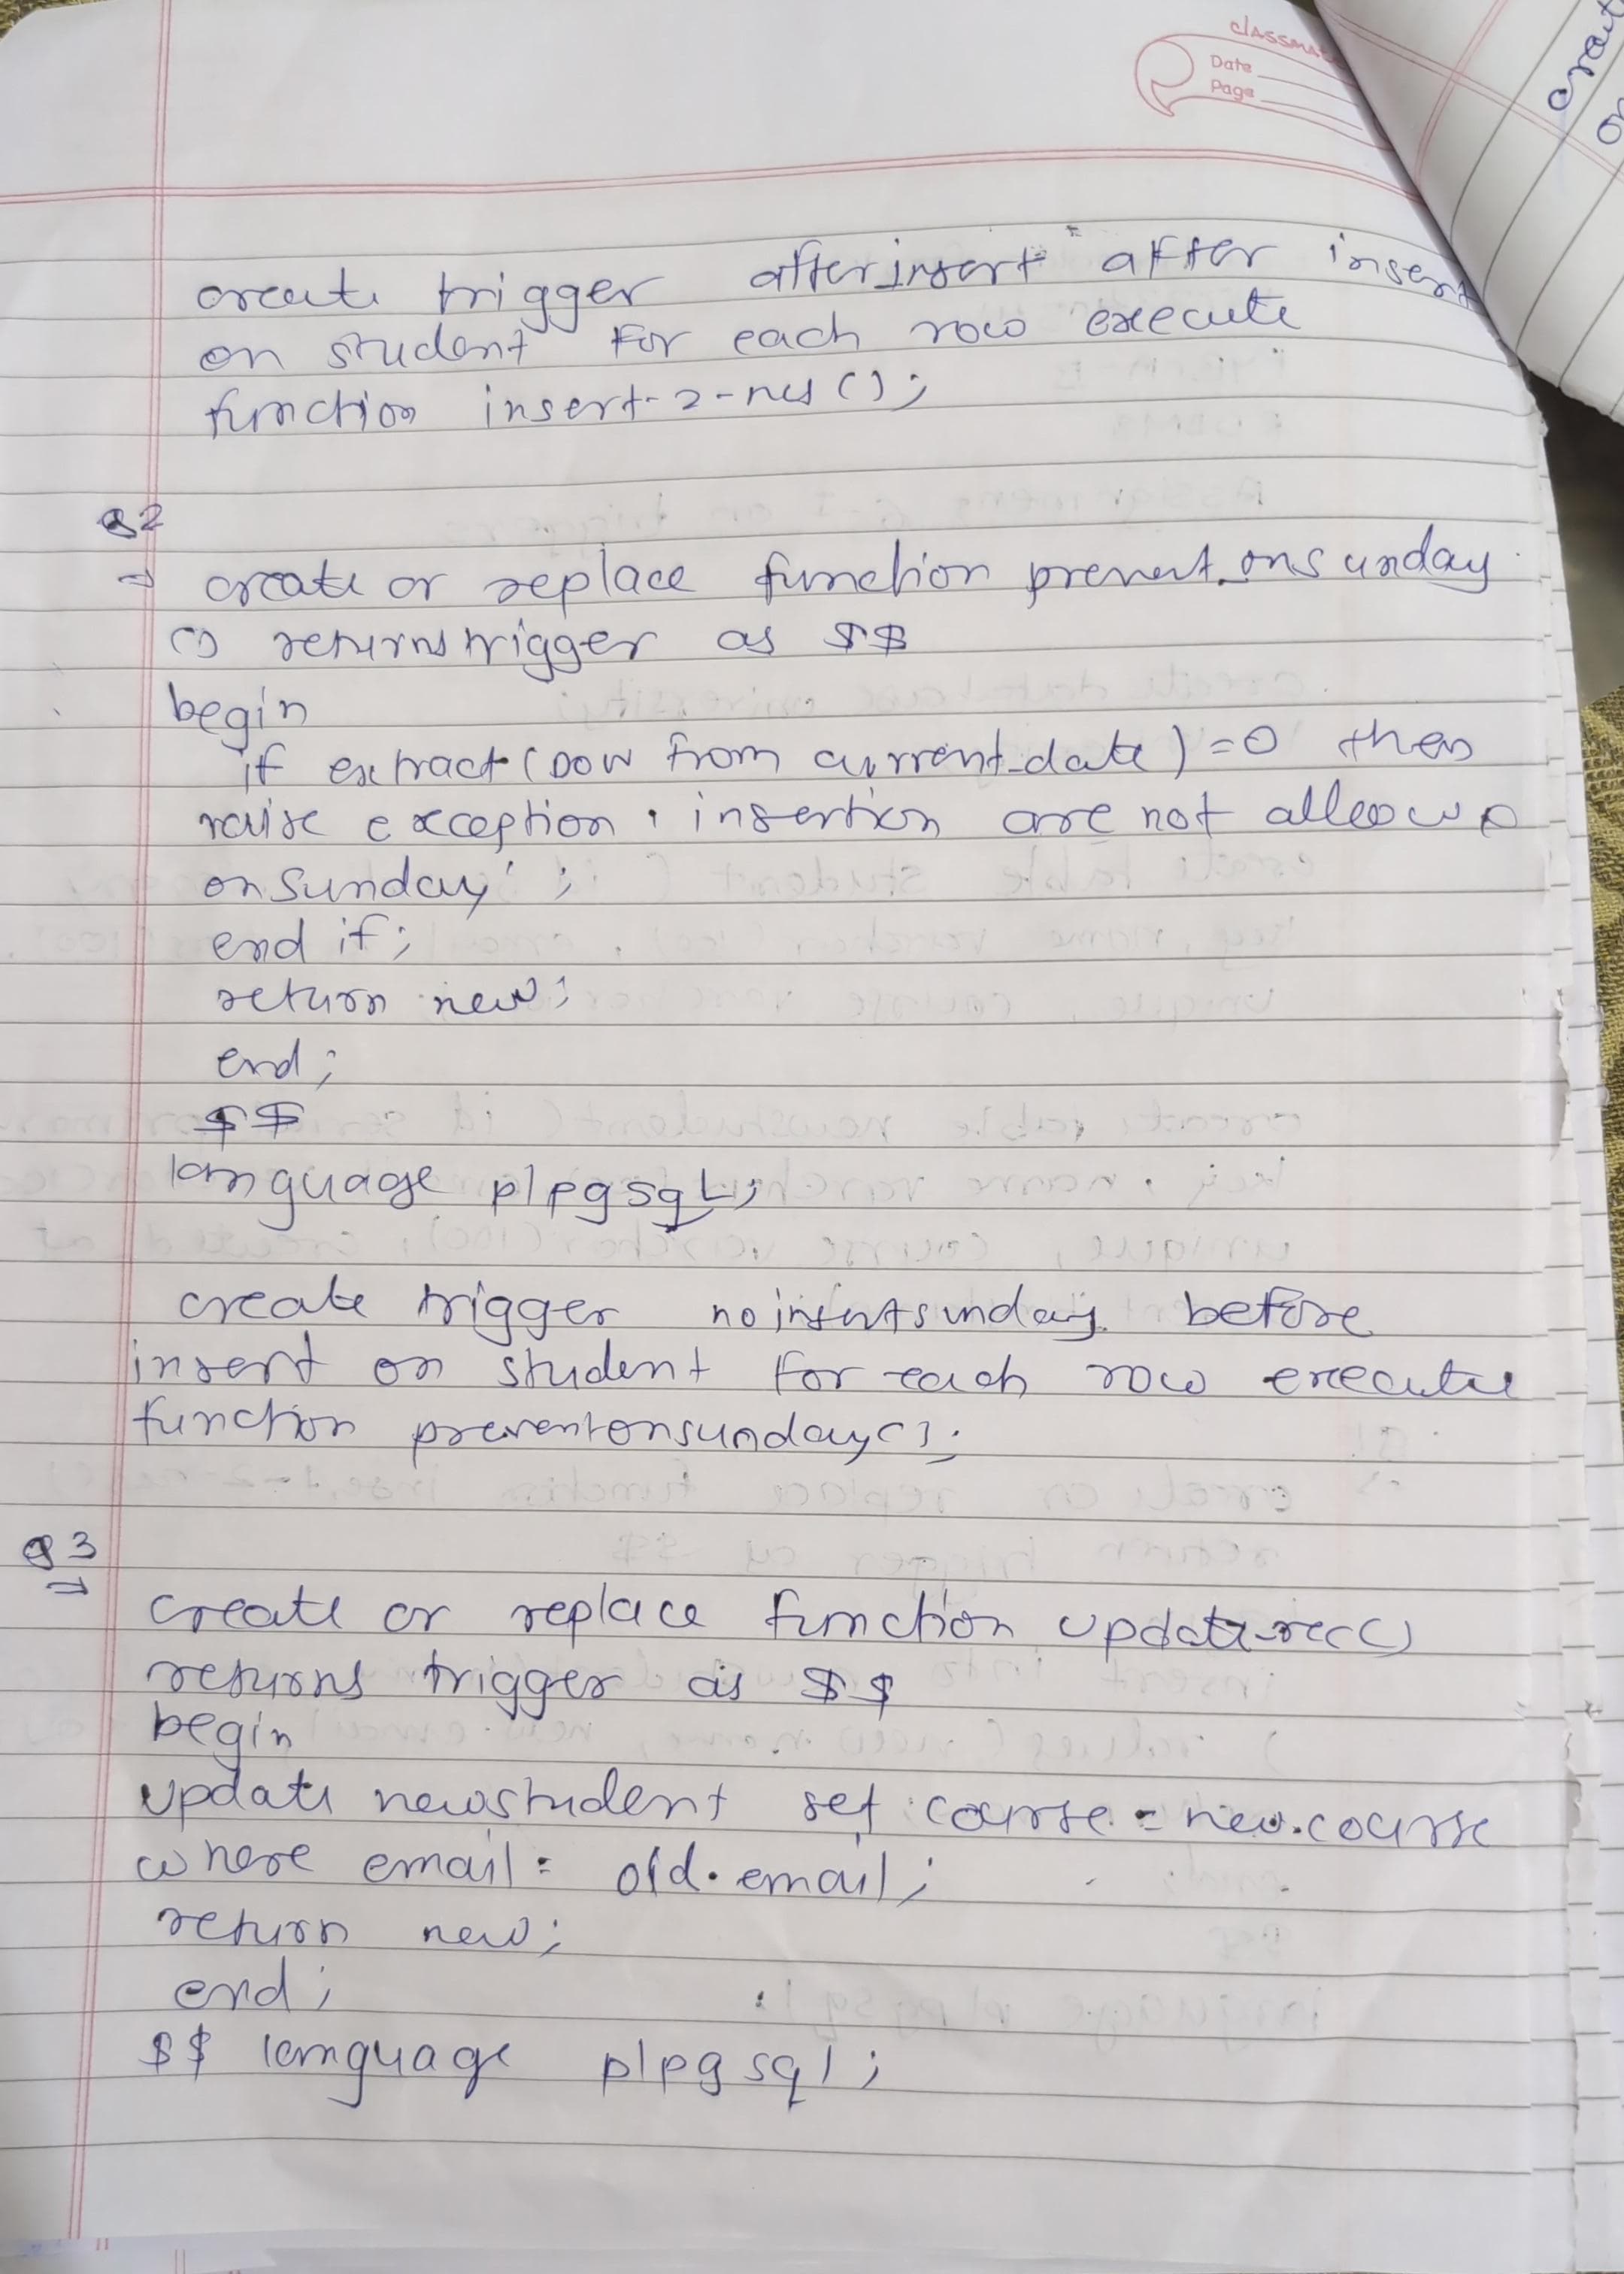 classma
Date
Page
create trigger after_insert after insert
on student for each row execute
function insert-2-ns();
Q2
→ create or replace function prevent_onsunday
() returns trigger as $$
begin
if extract (DOW from current_date) = 0 then
raise exception ' insertion are not allowed
on sunday' ;
end if;
return new;
end;
$$
language plpgsqL;
create trigger noinsertsunday before
insert on student for each row execute
function preventonsunday();
Q3
→
create or replace function update-rec()
returns trigger as $$
begin
update newstudent set course = new.course
where email = old.email;
return new;
end;
$$ language plpgsql;